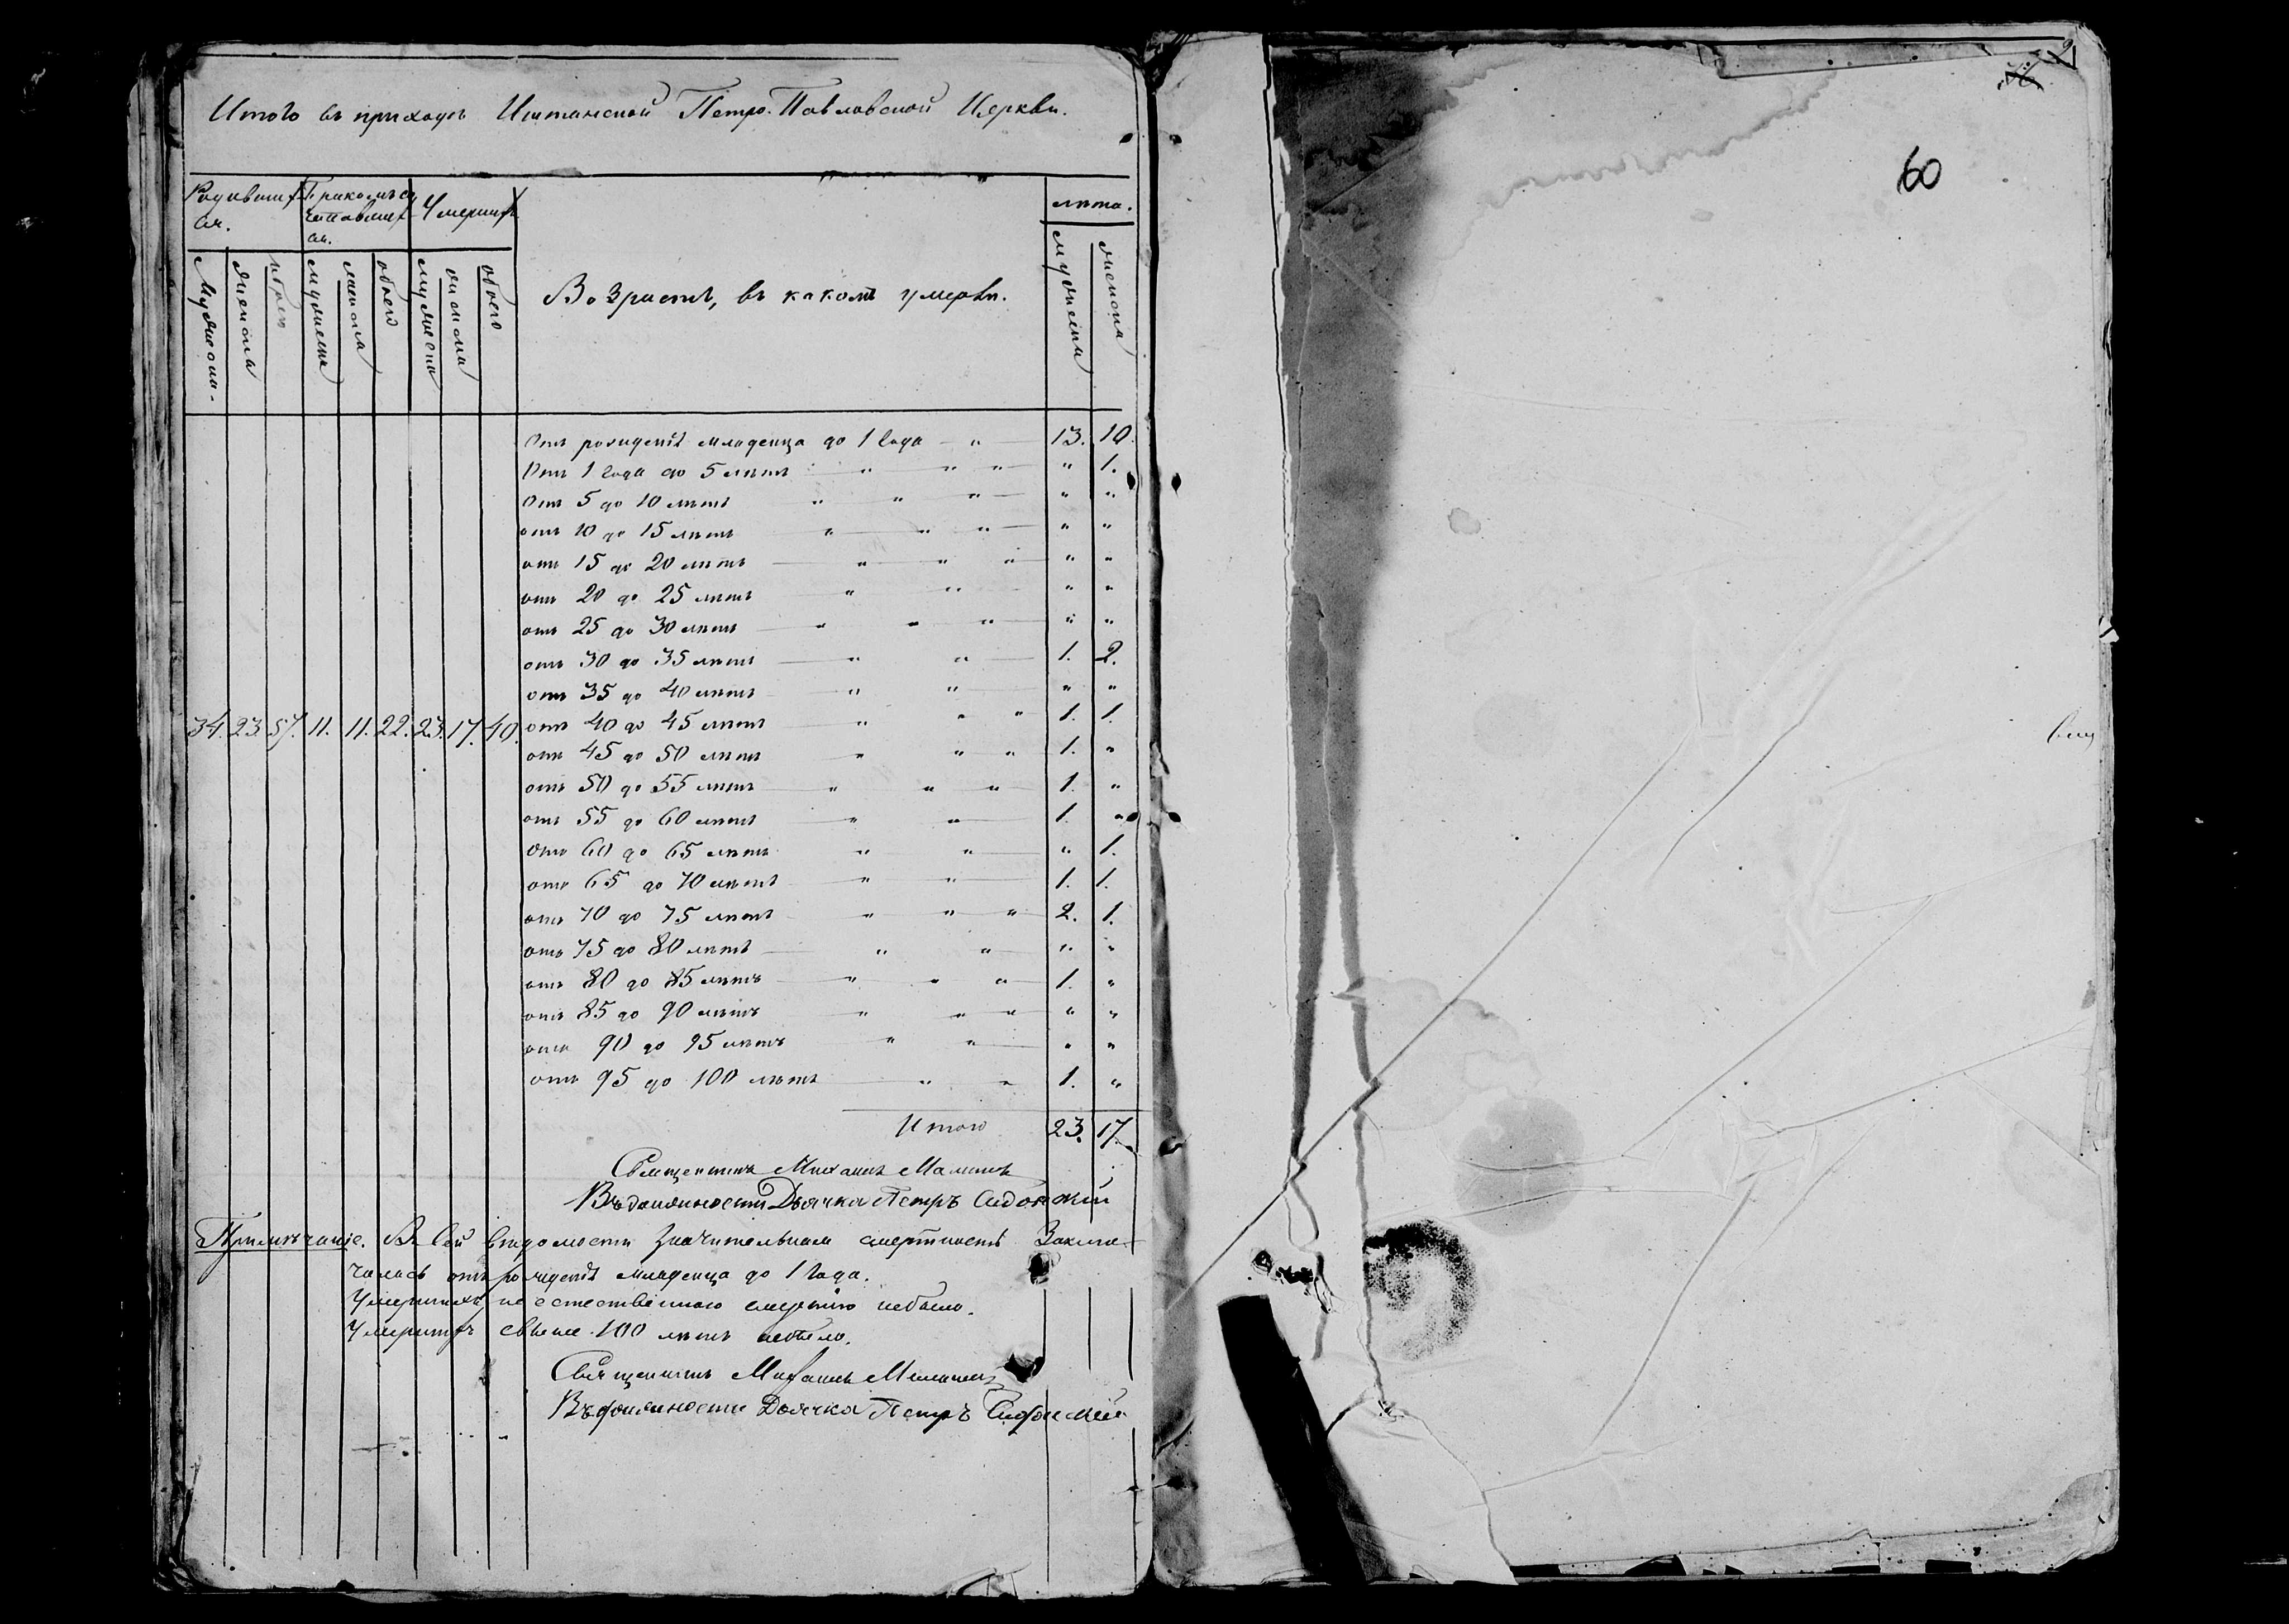 Итого въ приходѣ Иштанской Петро-Павловской Церкви.
Родивших
ся.
Бракомъ со
четавших
ся.
Умерших
лѣта.
Мужеска
женска
обоего
мужеска
женска
обоего
мужеска
женска
обоего
Возрастъ, въ какомъ умерли.
мужеска
женска
Отъ рожденія младенца до 1 года " 13. 10.
Отъ 1 года до 5 лѣтъ " " " " 1.
Отъ 5 до 10 лѣтъ " " " " "
отъ 10 до 15 лѣтъ " " " " "
отъ 15 до 20 лѣтъ " " " " "
отъ 20 до 25 лѣтъ " " " "
отъ 25 до 30 лѣтъ " " " " "
отъ 30 до 35 лѣтъ " " 1. 2.
отъ 35 до 40 лѣтъ " " " "
34. 23. 57. 11. 11. 22. 23. 17. 40. отъ 40 до 45 лѣтъ " " " 1. 1.
отъ 45 до 50 лѣтъ " " " 1. "
отъ 50 до 55 лѣтъ " " " 1. "
отъ 55 до 60 лѣтъ " " 1. "
отъ 60 до 65 лѣтъ " " " 1.
отъ 65 до 70 лѣтъ " " 1. 1.
отъ 70 до 75 лѣтъ " " " 2. 1.
отъ 75 до 80 лѣтъ " " " "
отъ 80 до 85 лѣтъ " " " 1. "
отъ 85 до 90 лѣтъ " " " " "
отъ 90 до 95 лѣтъ " " " "
отъ 95 до 100 лѣтъ " " 1. "
Итого 23. 17.
Священникъ Михаилъ
Въ должности Дьячка Петръ Сидонскій
Примѣчаніе. Въ сей вѣдомости значительная смертность заклю-
чалась отъ рожденія младенца до 1 года.
Умершихъ не естественною смертію небыло.
Умерших свыше 100 лѣтъ небыло.
Священникъ Михаилъ
Въ должности Дьячка Петръ Сидонскій
2
60